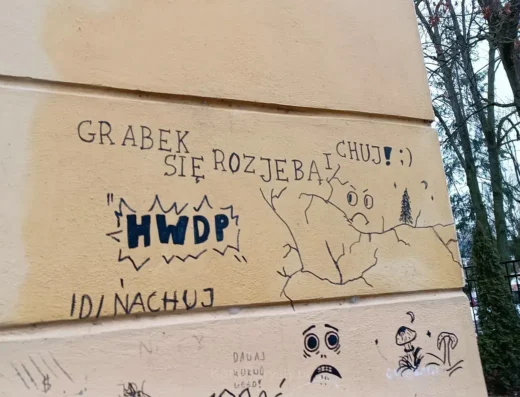 GRABEK
SIĘ ROZJEBĄŁ
I CHUJ! ;)
"HWDP"
IDŹ NACHUJ
DAWAJ
KURWO